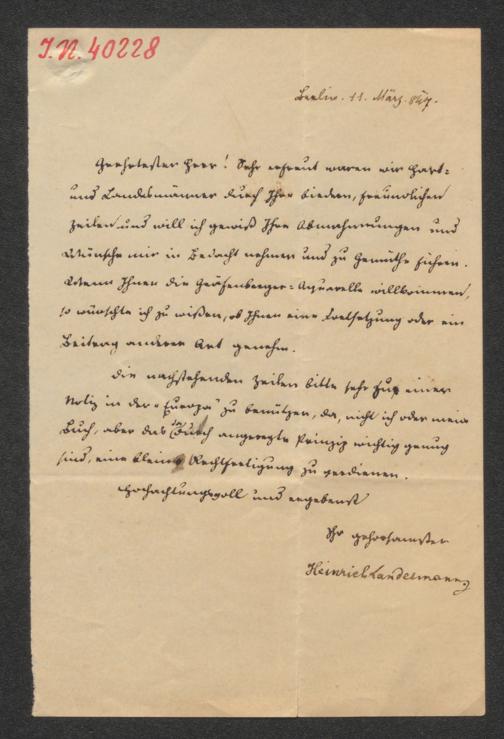 J.N. 40228
Berlin. 11. März. 847.
Geehrtester Herr! Sehr erfreut waren wir
und Landesmänner durch Ihre biedern, freundlichen
Zeilen und will ich gewiß Ihre Abmahnungen und
Wünsche mir in Bedacht nehmen und zu Gemüthe führen.
Wenn Ihnen die Gräfenberger-Aquarelle willkommen,
so wünschte ich zu wißen, ob Ihnen eine Fortsetzung oder ein
Beitrag anderer Art genehm.
Die nachstehenden Zeilen bitte sehr zu einer
Notiz in der "Europa" zu benützen, da, nicht ich oder mein
Buch, aber das durch angeregte Prinzip wichtig genug
sind, eine kleine Rechtfertigung zu verdienen.
Hochachtungsvoll und ergebenst
Ihr gehorsamster
Heinrich Landesmann